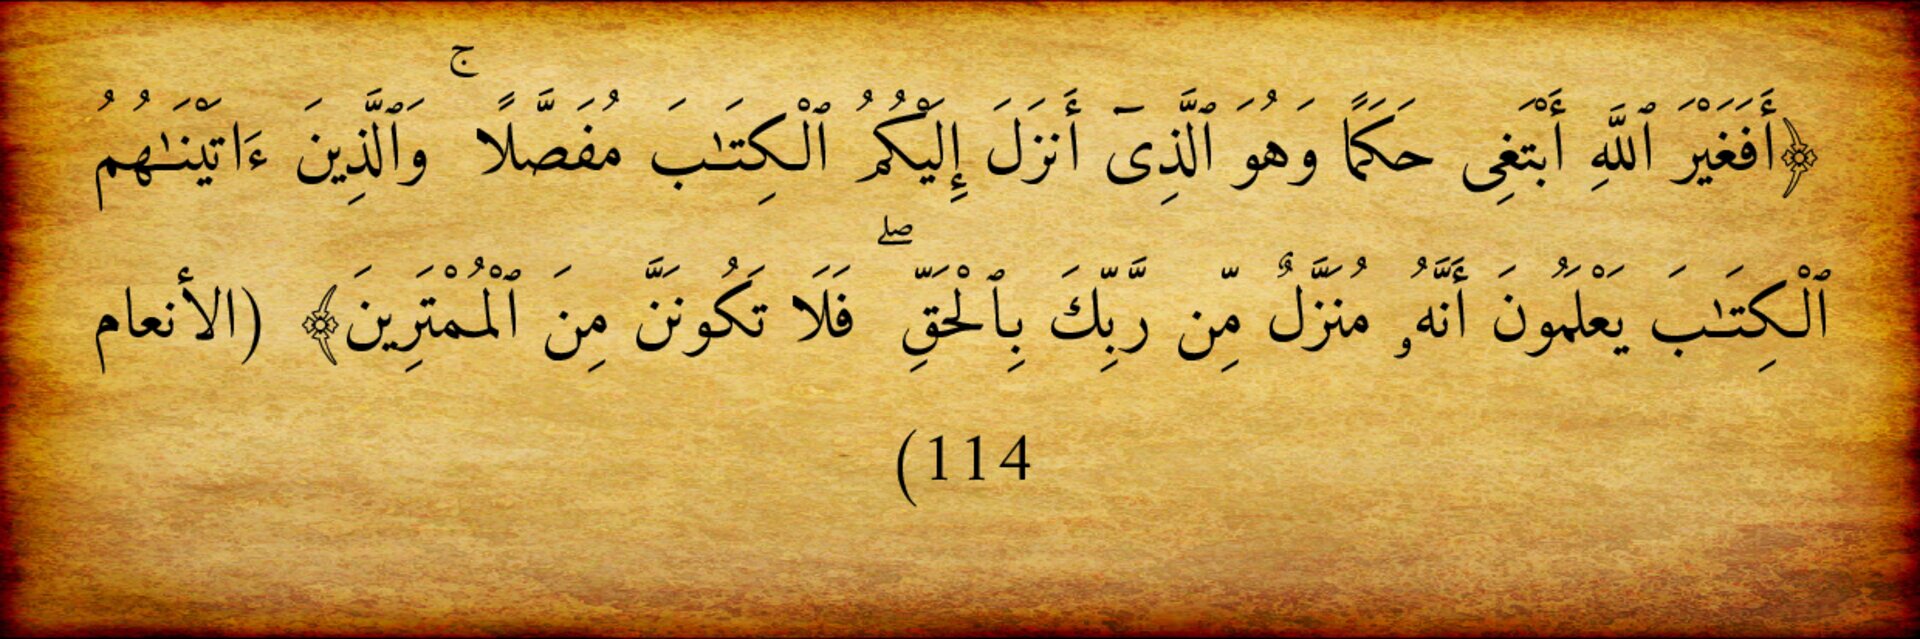 ﴿أَفَغَيْرَ ٱللَّهِ أَبْتَغِى حَكَمًا وَهُوَ ٱلَّذِىٓ أَنزَلَ إِلَيْكُمُ ٱلْكِتَـٰبَ مُفَصَّلًا ۚ وَٱلَّذِينَ ءَاتَيْنَـٰهُمُ
ٱلْكِتَـٰبَ يَعْلَمُونَ أَنَّهُۥ مُنَزَّلٌ مِّن رَّبِّكَ بِٱلْحَقِّ ۖ فَلَا تَكُونَنَّ مِنَ ٱلْمُمْتَرِينَ﴾ (الأنعام
114)